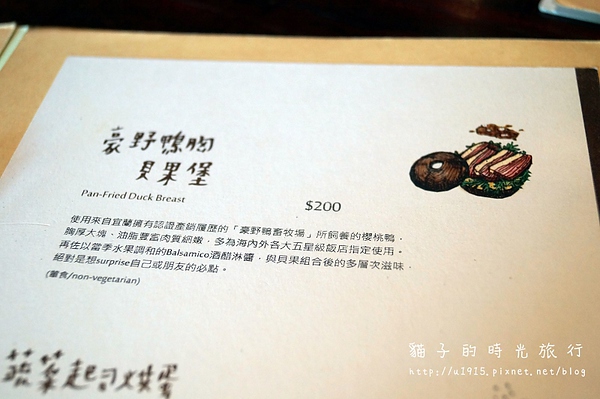 豪野鴨胸
貝果堡
Pan-Fried Duck Breast
$200
使用來自宜蘭擁有認證產銷履歷的「豪野鴨畜牧場」所飼養的櫻桃鴨，
胸厚大塊、油脂豐富肉質細嫩，多為海內外各大五星級飯店指定使用。
再佐以當季水果調和的Balsamico酒醋淋醬，與貝果組合後的多層次滋味，
絕對是想surprise自己或朋友的必點。
(葷食/non-vegetarian)
蔬菜起司烘蛋
貓子的時光旅行
http://u1915.pixnet.net/blog